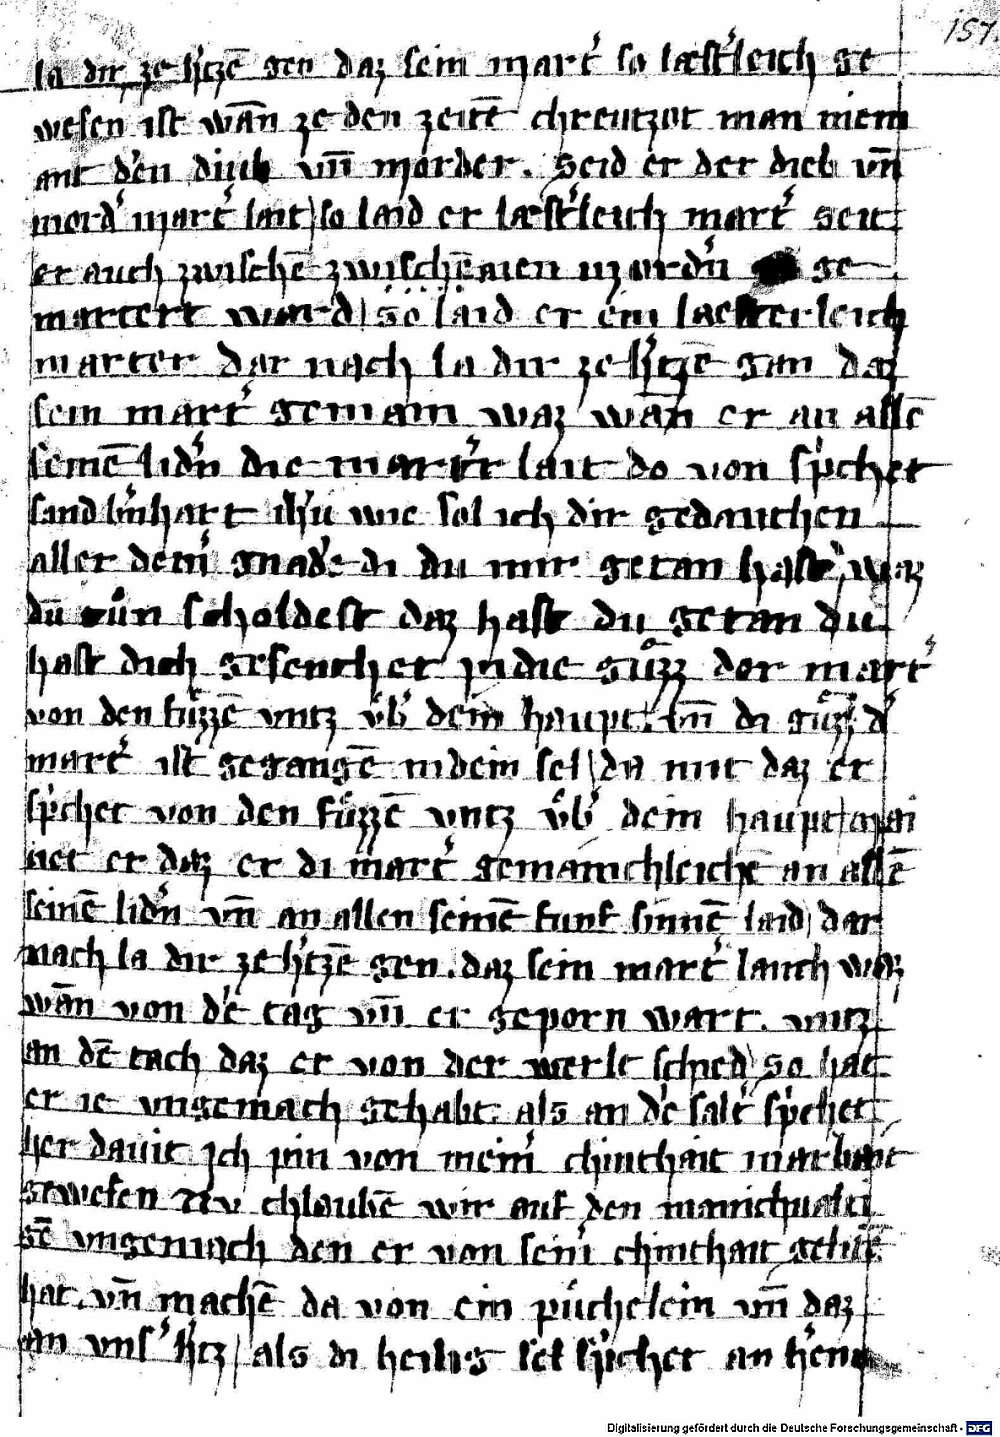 157.
la dir ze hʼtzē gen daz sein martʼ so læstʼleich ge
wesen ist wān ze den zeitē chreutzot man niem
ant dʼen diub vn̄ morder. Seid er der dieb vn̄
mordʼ martʼ lait so laid er læstʼleich martʼ seit
er auch zwischē zwischē aien mordʼn ge
martert ward so laid er ein laesterleich
marter Dar nach la dir ze hʼtzē gan daz
sein martʼ gemain waz wān er an allē
seinē lidʼn die martʼr lait do von spʼchet
sand bʼnhart ihʼu wie sol ich dir gedanchen
aller deinʼ gnadʼe di du mir getan hast waz
du tůn scholdest daz hast du getan du
hast dich gesenchet in die gůzz der martʼ
von den fůzzē vntz vͤbʼ dein haupt. vn̄ di gůzz dʼ
martʼ ist gegangē in dein sel da mit daz er
spʼchet von den fůzzē vntz vͤbʼ dein haupt mai
net er daz er di martʼ gemainchleichē an allē
seinē lidʼn vn̄ an allen seinē funf sinnē laid dar
nach la dir ze hʼtzē gen. daz sein martʼ lanch waz
wān von dʼē tag vn̄ er geporn wart. vntz
an dē tach daz er von der werlt schied so hat
er ie vngemach gehabt. als an dʼē saltʼ spʼchet
her dauit Ich pin von meinʼ chinthait in arbait
gewesen Nv chlaubē wir auf den manichualti
gē vngemach den er von seinʼ chinthait gehabt
hat. vn̄ machē da von ein puͤchelein vn̄ daz
an vnsʼ hʼtz als di heilig sel spʼchet an
Digitalisierung gefördert durch die Deutsche Forschungsgemeinschaft - DFG